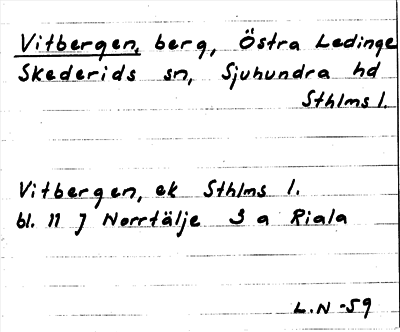 Vitbergen, berg, Östra Ledinge
Skederids sn, Sjuhundra hd
Sthlms l.
Vitbergen, ek Sthlms l.
bl. 11 J Norrtälje S a Riala
L.N -59